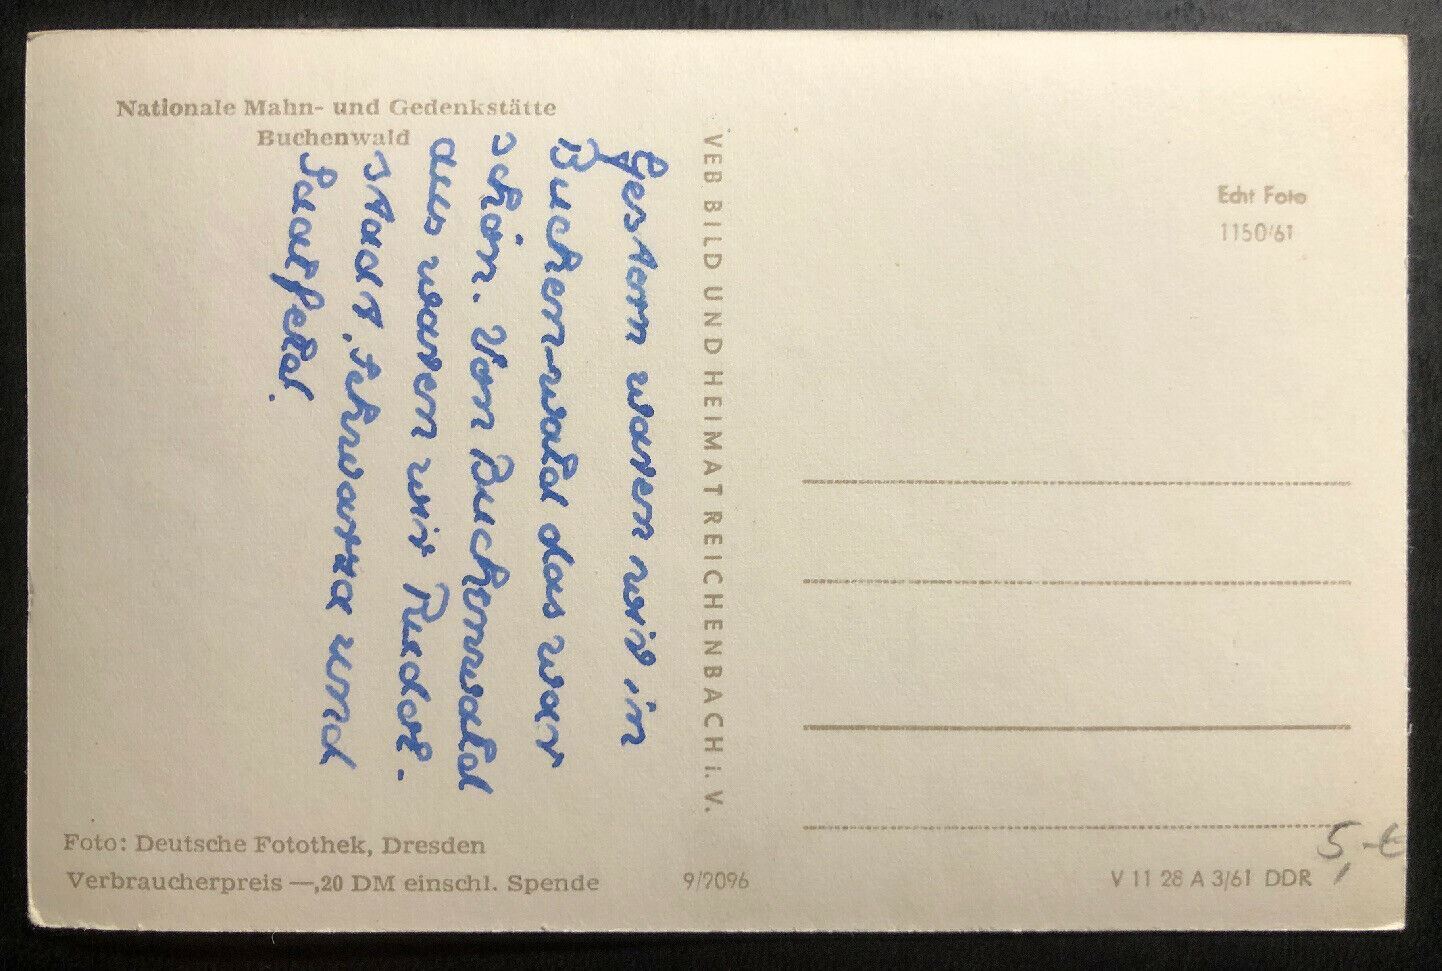 Nationale Mahn- und Gedenkstätte
Buchenwald
Gestern waren wir in
Buchenwald das war
schön. Von Buchenwald
aus waren wir Rudol-
stadt, Schwarza und
Saalfeld.
VEB BILD UND HEIMAT REICHENBACH i. V.
Echt Foto
1150/61
Foto: Deutsche Fotothek, Dresden
Verbraucherpreis —,20 DM einschl. Spende
9/7096
V 11 28 A 3/61 DDR
5,-€